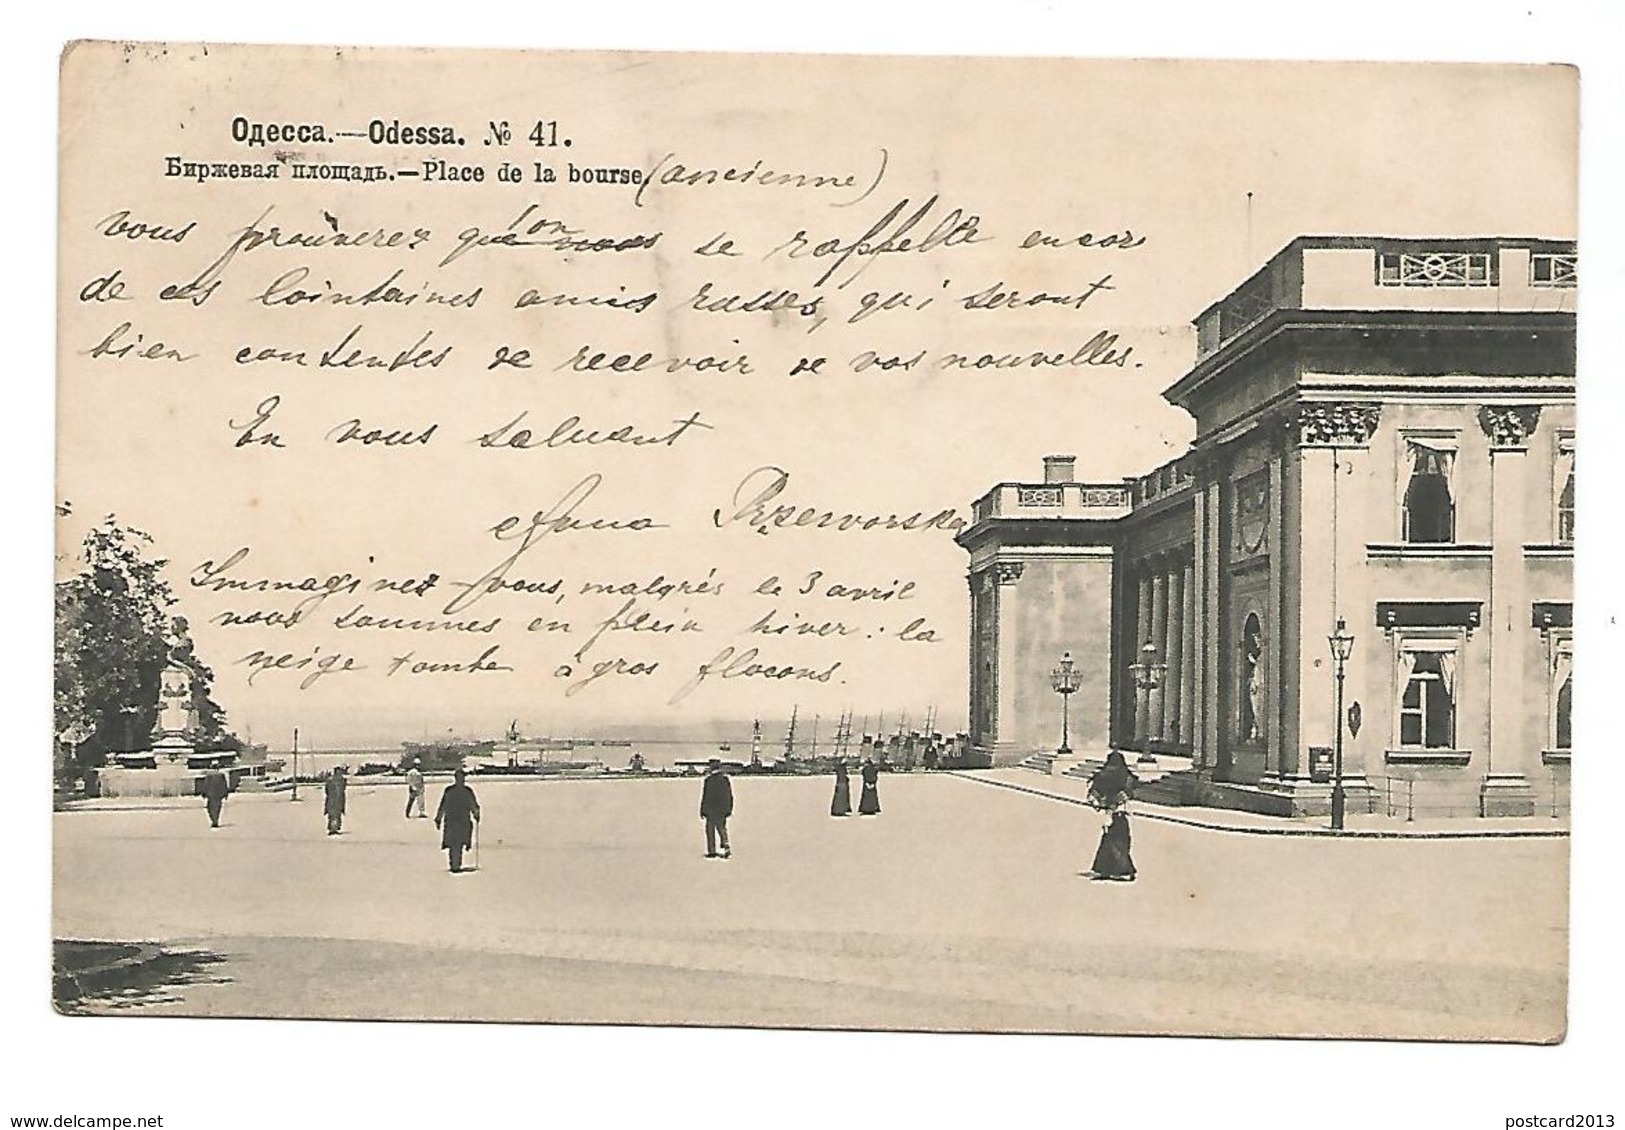 Одесса.—Odessa. № 41.
Биржевая площадь.—Place de la bourse. (ancienne)
vous prouverez que l'on nous se rappelle encore
de ces lointaines amis russes, qui seront
bien contentes de recevoir de vos nouvelles.
En vous saluant
Anna Przeworska
Immaginez-vous, malgrés le 3 avril
nous sommes en plein hiver: la
neige tombe à gros flocons.
www.delcampe.net
postcard2013